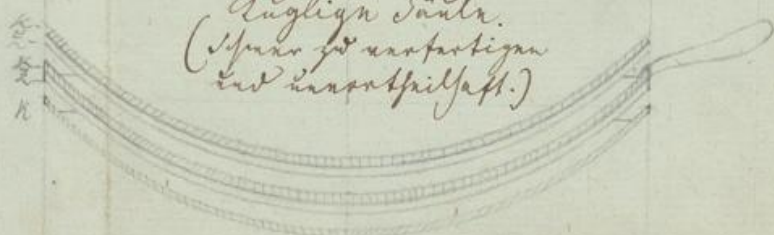 Kuglige Säule.
(Schwer zu verfertigen
und unvortheilhaft.)
K